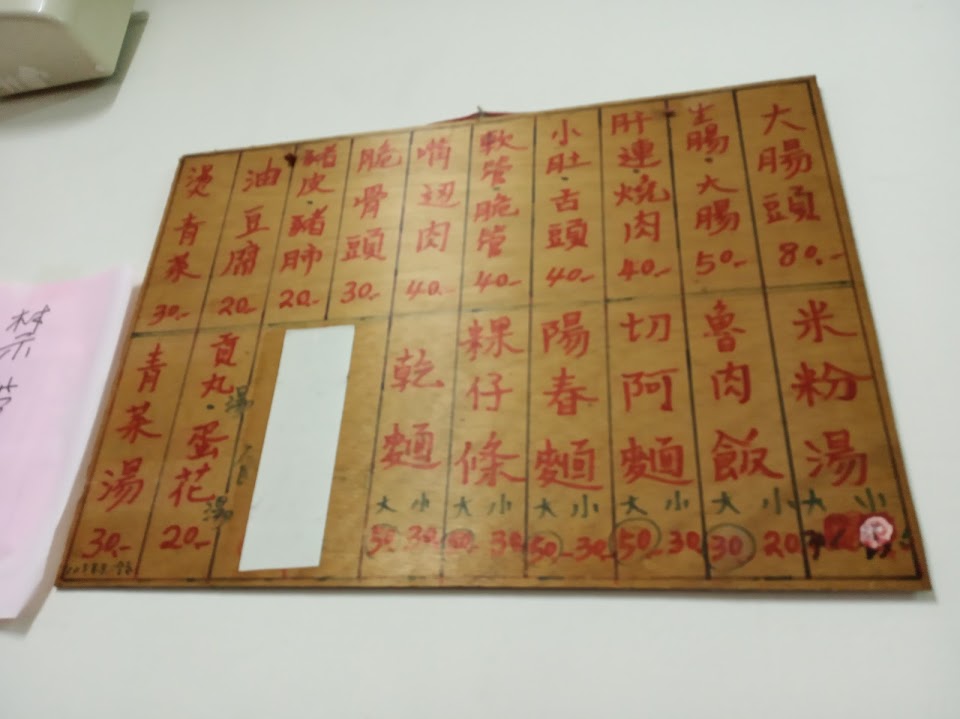 大腸頭 80.-
生腸.大腸 50-
肝連.燒肉 40.-
小肚.舌頭 40.-
軟管.脆管 40.-
嘴边肉 40.-
脆骨頭 30.-
豬皮.豬肺 20.-
油豆腐 20.-
燙青菜 30.-
米粉湯 大 小
魯肉飯 大 小 30 20
切阿麵 大 小 50- 30
陽春麵 大 小 50- 30-
粿仔條 大 小 30
乾麵 大 小 50 30
貢丸湯.蛋花湯 20-
青菜湯 30.-
禁